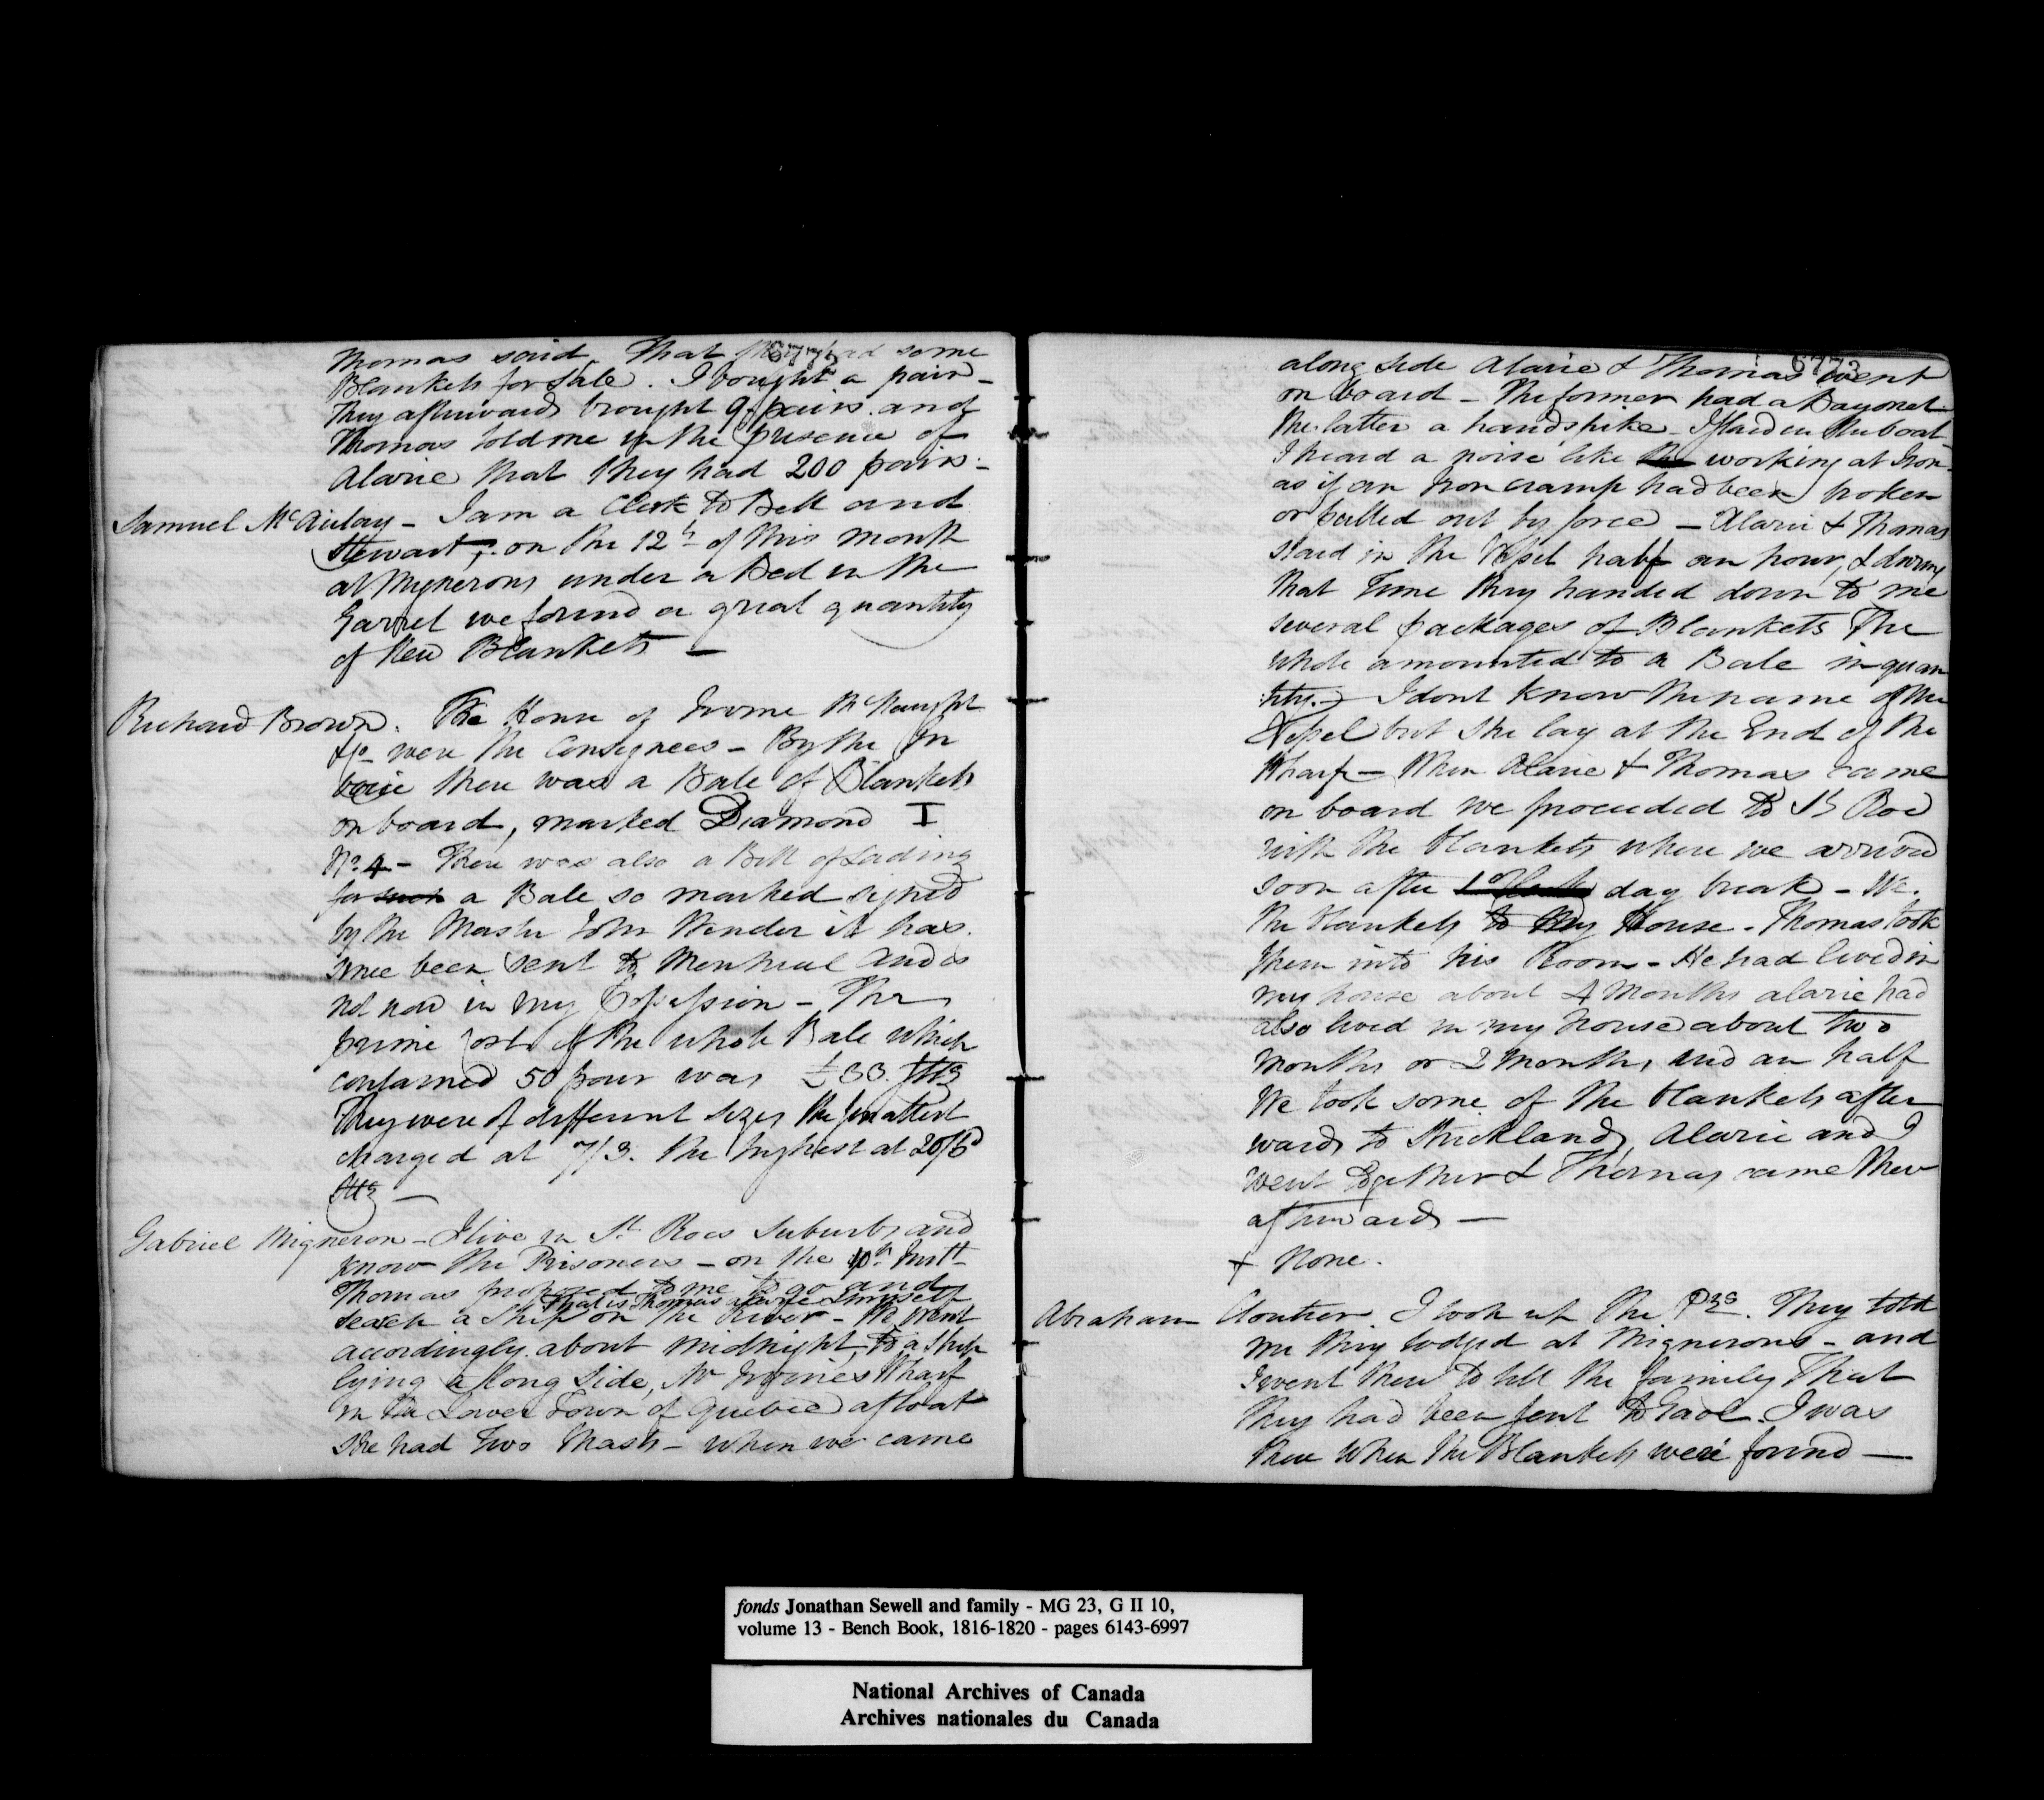 6772
Thomas said that they had some
Blankets for Sale. I bought a pair -
They afterwards brought 9 pairs and
Thomas told me in the presence of
Alarie that they had 200 pairs -
Samuel McAulay - I am a Clerk to Bell and
Stewart, - on the 12th of this month
at Mignerons under a Bed in the
Garret we found a great quantity
of New Blankets -
Richard Brown. The House of Irvine McNaught
& Co were the Consignees - By the In
voice there was a Bale of Blankets
on board, marked Diamond I
No. 4 - There was also a Bill of Lading
for such a Bale so marked signed
by the Master John it has
since been sent to Montreal and is
not now in my Possession - The
prime Cost of the whole Bale which
contained 50 pair was £33. Stg
They were of different sizes the smallest
charged at 7/3. the highest at 20/6d
Stg -
Gabriel Migneron - I live in St Rocs Suburbs and
know the Prisoners - on the 10th Instt
Thomas proposed to me to go and
that is Thomas Alarie & myself
search a Ship on the River - We went
accordingly about midnight, to a Ship
lying along Side, Mr Irvine's Wharf
in the Lower Town of Quebec afloat
She had Two Masts - when we came
6773
along side Alarie & Thomas went
on board - The former had a Bayonet
the latter a handspike - I staid in the boat -
I heard a noise like working at Iron -
as if an Iron cramp had been broken
or pulled out by force - Alarie & Thomas
staid in the Vessel half an hour, & during
that Time they handed down to me
several packages of Blankets The
whole amounted to a Bale in quan
tity. - I dont know the name of the
Vessel but she lay at the End of the
Wharf - When Alarie & Thomas came
on board we proceeded to St Roc
with the blankets where we arrived
soon after day break - We.
the blankets to my House - Thomas took
them into his Room - He had lived in
my house about 4 Months Alarie had
also lived in my house about two
months or 2 months and an half
We took some of the blankets after
wards to Stricklands Alarie and I
went together & Thomas came there
afterwards -
x None.
Abraham Cloutier. I took up the Prs. They told
me they lodged at Mignerons - and
I went there to tell the family that
they had been sent to Gaol. I was
there when the Blankets were found -
fonds Jonathan Sewell and family - MG 23, G II 10,
volume 13 - Bench Book, 1816-1820 - pages 6143-6997
National Archives of Canada
Archives nationales du Canada